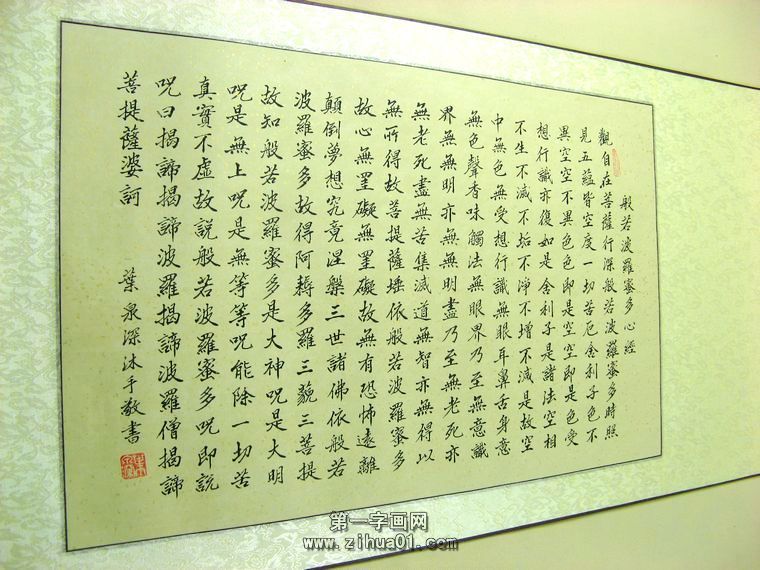 般若波羅蜜多心經
觀自在菩薩行深般若波羅蜜多時照
見五蘊皆空度一切苦厄舍利子色不
異空空不異色色即是空空即是色受
想行識亦復如是舍利子是諸法空相
不生不滅不垢不淨不增不減是故空
中無色無受想行識無眼耳鼻舌身意
無色聲香味觸法無眼界乃至無意識
界無無明亦無無明盡乃至無老死亦
無老死盡無苦集滅道無智亦無得以
無所得故菩提薩埵依般若波羅蜜多
故心無罣礙無罣礙故無有恐怖遠離
顛倒夢想究竟涅槃三世諸佛依般若
波羅蜜多故得阿耨多羅三藐三菩提
故知般若波羅蜜多是大神呪是大明
呪是無上呪是無等等呪能除一切苦
真實不虛故說般若波羅蜜多呪即說
呪曰揭諦揭諦波羅揭諦波羅僧揭諦
菩提薩婆訶
葉泉深沐手敬書
第一字画网
www.zihua01.com